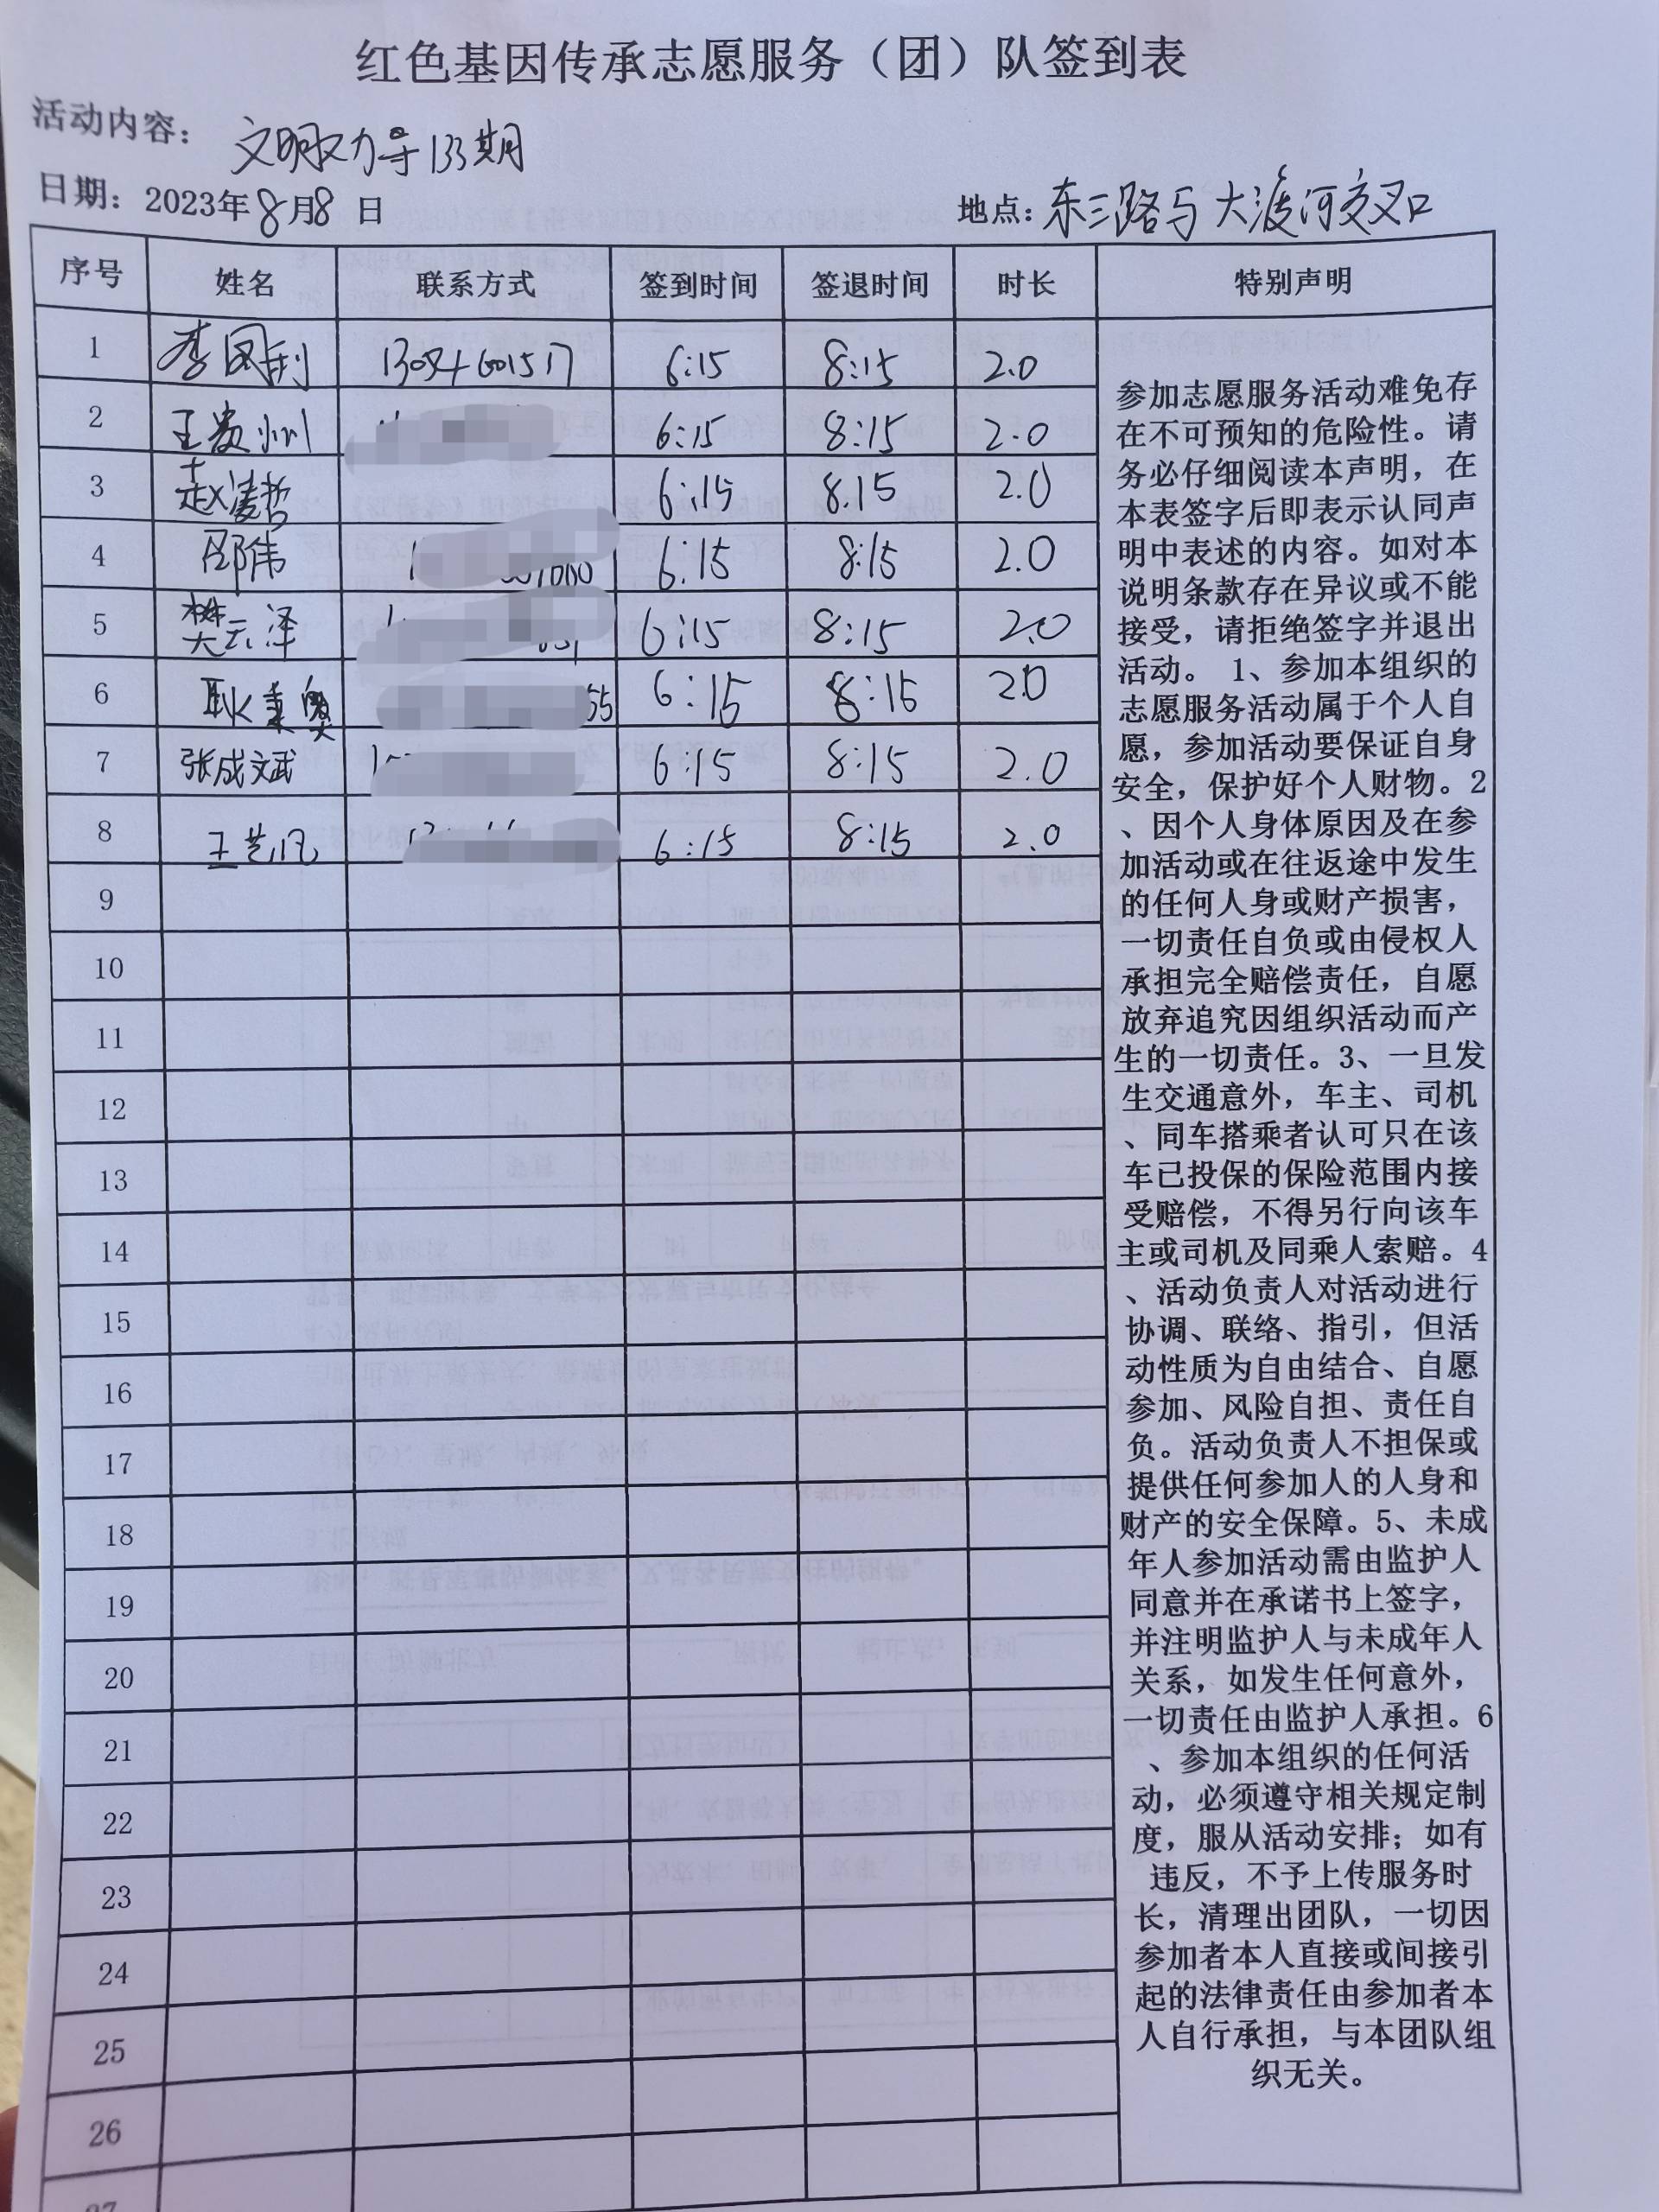 红色基因传承志愿服务（团）队签到表
活动内容： 文明劝导133期
日期：2023年8月8日 地点：东三路与大渡河交叉口
序号 姓名 联系方式 签到时间 签退时间 时长 特别声明
1 6:15 8:15 2.0
2 王贵川 6:15 8:15 2.0
3 赵凌哲 6:15 8:15 2.0
4 邵伟 6:15 8:15 2.0
5 樊云泽 6:15 8:15 2.0
6 55 6:15 8:15 2.0
7 张成斌 6:15 8:15 2.0
8 王艺凡 6:15 8:15 2.0
9
10
11
12
13
14
15
16
17
18
19
20
21
22
23
24
25
26
27
参加志愿服务活动难免存
在不可预知的危险性。请
务必仔细阅读本声明，在
本表签字后即表示认同声
明中表述的内容。如对本
说明条款存在异议或不能
接受，请拒绝签字并退出
活动。 1、参加本组织的
志愿服务活动属于个人自
愿，参加活动要保证自身
安全，保护好个人财物。2
、因个人身体原因及在参
加活动或在往返途中发生
的任何人身或财产损害，
一切责任自负或由侵权人
承担完全赔偿责任，自愿
放弃追究因组织活动而产
生的一切责任。3、一旦发
生交通意外，车主、司机
、同车搭乘者认可只在该
车已投保的保险范围内接
受赔偿，不得另行向该车
主或司机及同乘人索赔。4
、活动负责人对活动进行
协调、联络、指引，但活
动性质为自由结合、自愿
参加、风险自担、责任自
负。活动负责人不担保或
提供任何参加人的人身和
财产的安全保障。5、未成
年人参加活动需由监护人
同意并在承诺书上签字，
并注明监护人与未成年人
关系，如发生任何意外，
一切责任由监护人承担。6
、参加本组织的任何活
动，必须遵守相关规定制
度，服从活动安排；如有
违反，不予上传服务时
长，清理出团队，一切因
参加者本人直接或间接引
起的法律责任由参加者本
人自行承担，与本团队组
织无关。